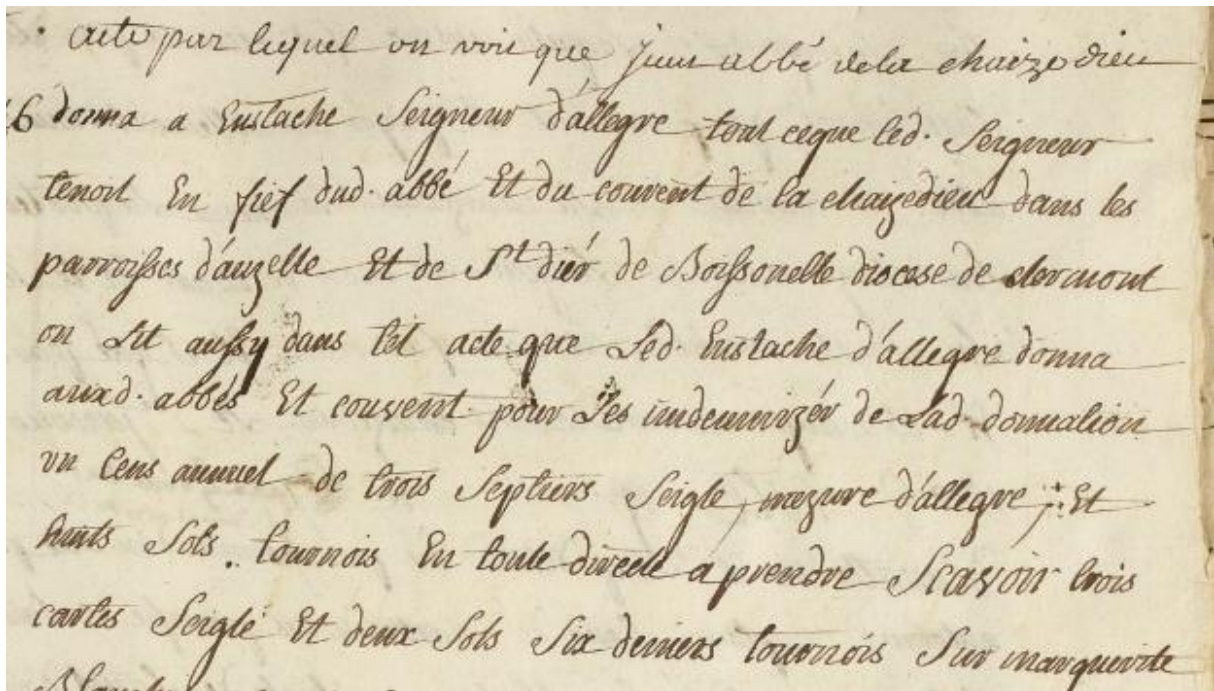 acte par lequel on voit que jean abbé dela chaize dieu
6 donna a Eustache Seigneur d'allegre tout ceque led. Seigneur
tenoit En fief dud. abbé Et du couvent de la chaizedieu dans les
parroisses d'auzelle Et de St diér de Boissonelle diocese de clermont
on Lit aussy dans cet acte que Led. Eustache d'allegre donna
auxd. abbés Et couvent pour Les indemnizér de Lad. donnation
vn Cens annuel de trois Septiers Seigle, mezure d'allegre, Et
huits Sols tournois En toute directe a prendre Scavoir trois
cartes Seigle Et deux Sols Six deniers tournois Sur marguerite